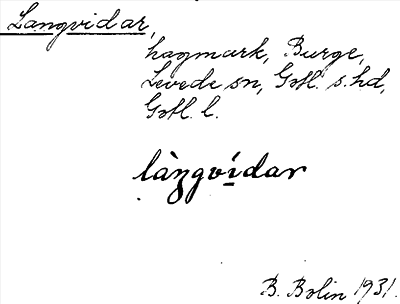 Langvidar,
hagmark, Burge,
Levede sn, Gotl. s. hd,
Gotl. l.
làŋgvídar
B. Bolin 1931.